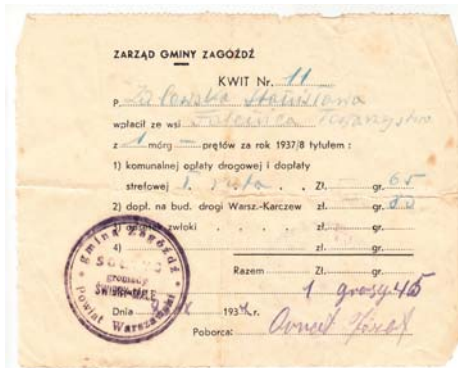 ZARZĄD GMINY ZAGÓŹDŹ
KWIT Nr. 11
P. Zalewska Stanisława
wpłacił ze wsi Falenica
z 1 mórg — prętów za rok 1937/8 tytułem :
1) komunalnej opłaty drogowej i dopłaty
strefowej I. Zł. gr. 65
2) dopł. na bud. drogi Warsz.-Karczew zł. gr. 80
3) zwłoki zł. gr.
4) zł. gr.
Razem Zł. gr.
1 groszy 45
Dnia 193 r.
Poborca: Józef
gmina Zagóźdź
SOŁTYS
gromady
ŚWIDRY-MAŁE
Powiat Warszawski